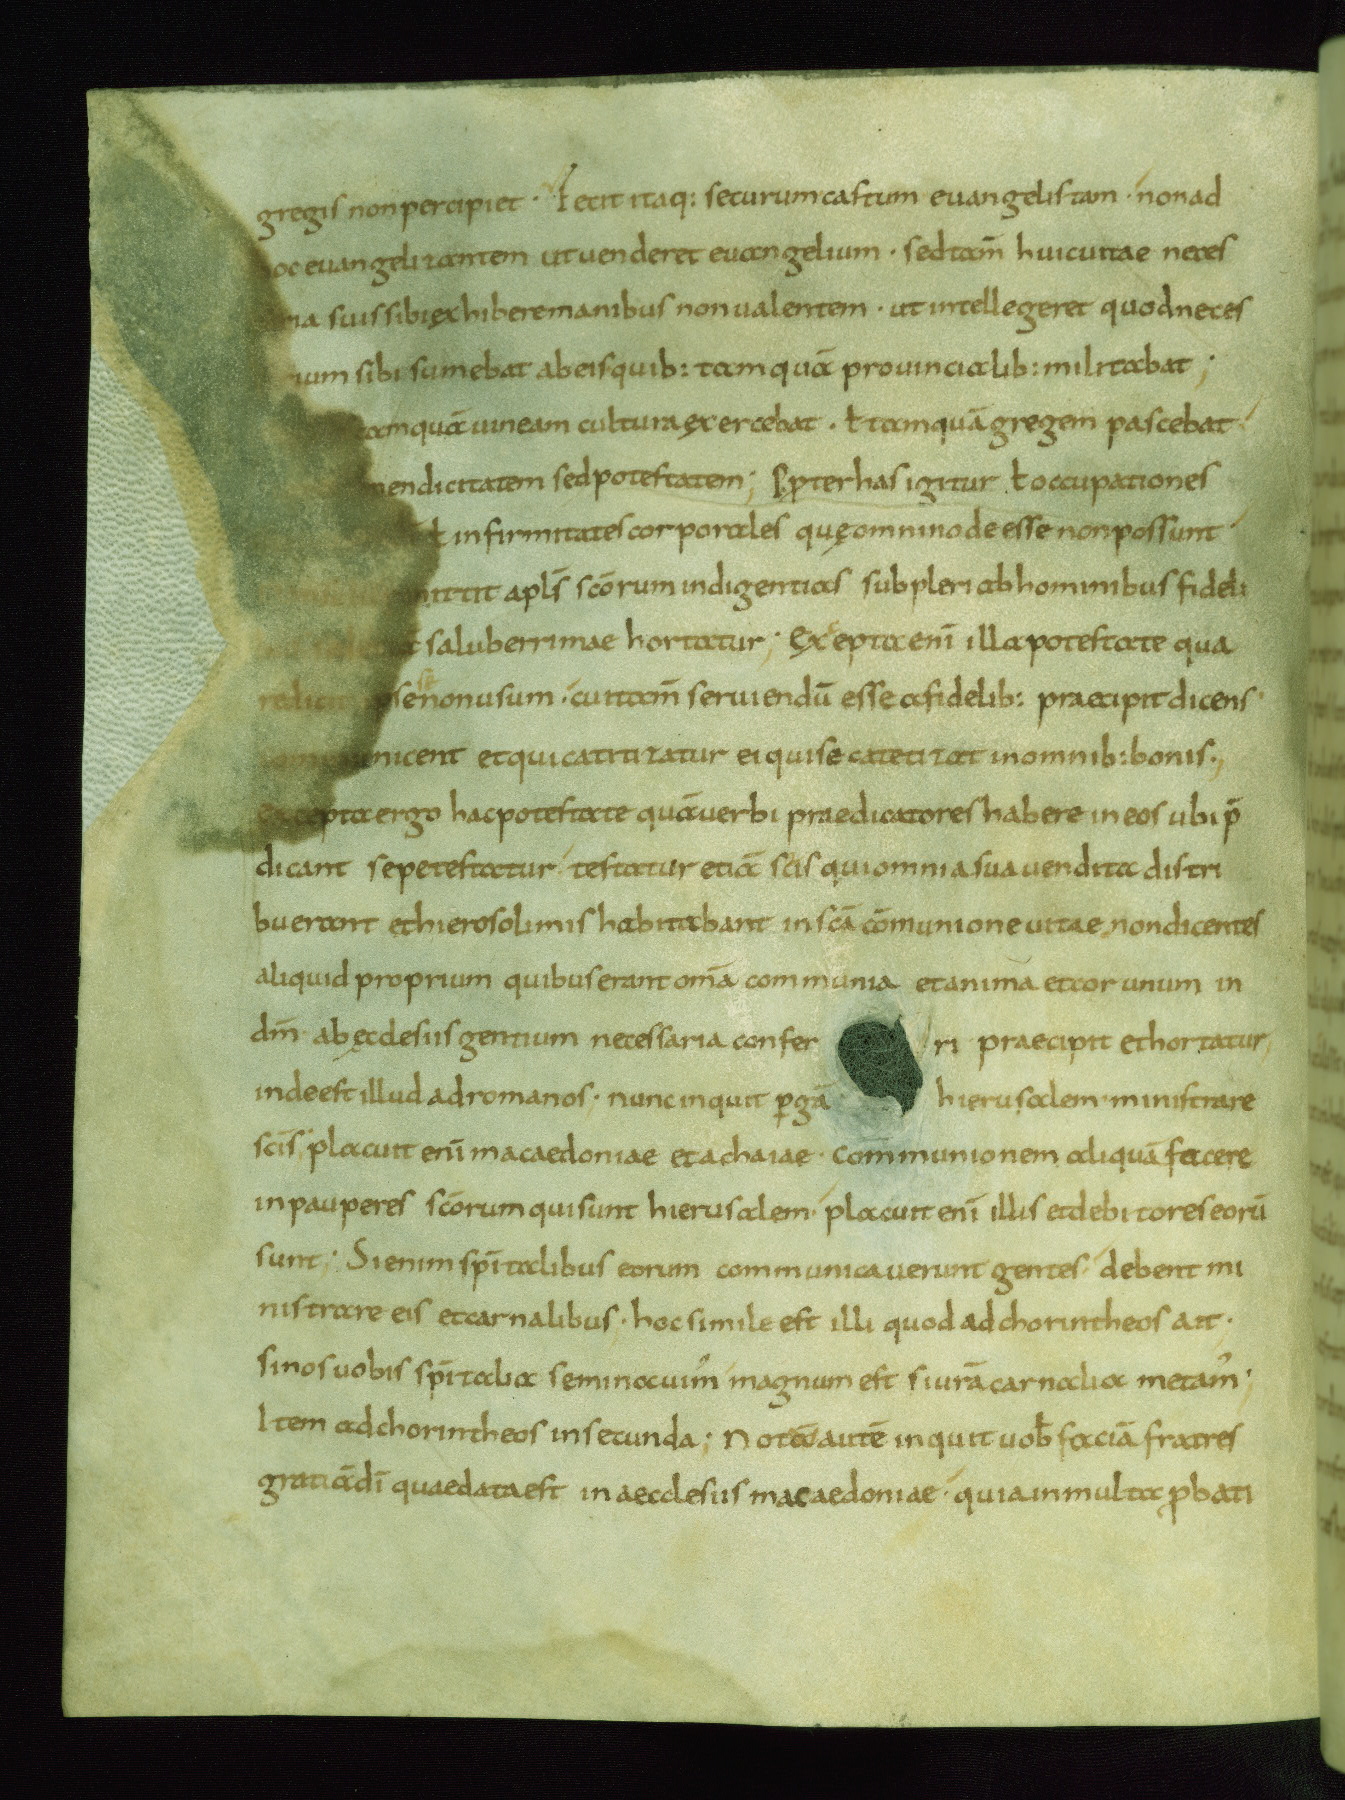 gregis non percipiet · Fecit itaq: securum castum evangelistam · non ad
hoc euangelizantem ut venderet euangelium · sed tam̄ huic uitae neces
ria suis sibi exhibere manibus non ualentem · ut intellegeret quod neces
rium sibi sumebat ab eis quib: tamquā prouincialib: militabat ;
tamquā uineam cultura exercebat · et tamquā gregem pascebat
mendicitatem sed potestatem ; Ppter has igitur et occupationes
et infirmitates corporales quę omnino de esse non possunt ·
mittit apl̄s sc̄orum indigentias suppleri ab hominibus fideli
saluberrimae hortatur ; Exepta enī illa potestate qua
se non usum · cui tam̄ seruiendū esse a fidelib: praecipit dicens ·
communicent et qui catitizatur ei qui se catetizat in omnib: bonis ·,
excepta ergo hac potestate quā uerbi praedicatores habere in eos ubi p̄
dicant sepe testatur · testatur etiā sc̄is qui omnia sua uendita distri
buerant et hierosolimis habitabant in sc̄a cōmunione uitae non dicentes
aliquid proprium quibus erant om̄a communia et anima et cor unum in
dm̄ · ab ęcclesiis gentium necessaria confer ri praecipit et hortatur,
inde est illud ad romanos · nunc inquit pgā hierusalem · ministrare
sc̄is · placuit enī macaedoniae et achaiae · commmunionem aliquā facere
in pauperes sc̄orum qui sunt hierusalem · placuit enī illis et debitores eorū
sunt ; Si enim sp̄italibus eorum communicauerunt gentes · debent mi
nistrare eis et carnalibus · hoc simile est illi quod ad chorintheos ait ·
si nos uobis sp̄italia seminauim' magnum est si urā carnalia metam' ;
Item ad chorintheos in secunda ; Notā autē inquit uob̄ faciā fratres
gratiā dī quae data est in aecclesiis macaedoniae · quia in multa pbati